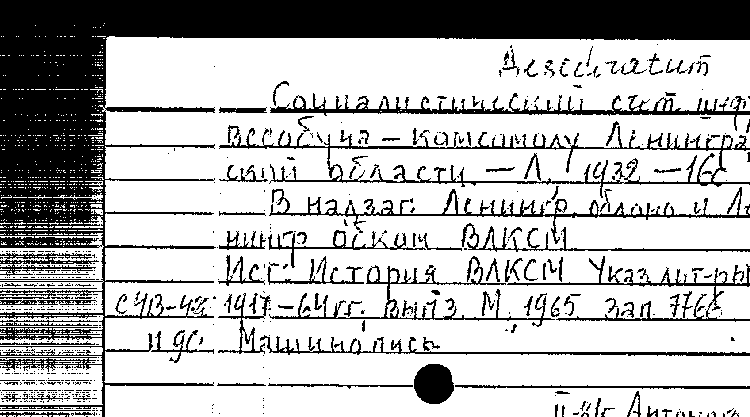 Desideratum
Социалистический счет
всеобуча – комсомолу Ленингра
ской области. – Л., 1932 – 16с
В надзаг: Ленингр. облоно и Ле
нингр обком ВЛКСМ
Ист: История ВЛКСМ Указ лит-ры
1917–64 гг. вып 3. М., 1965 зап 7766
Машинопись